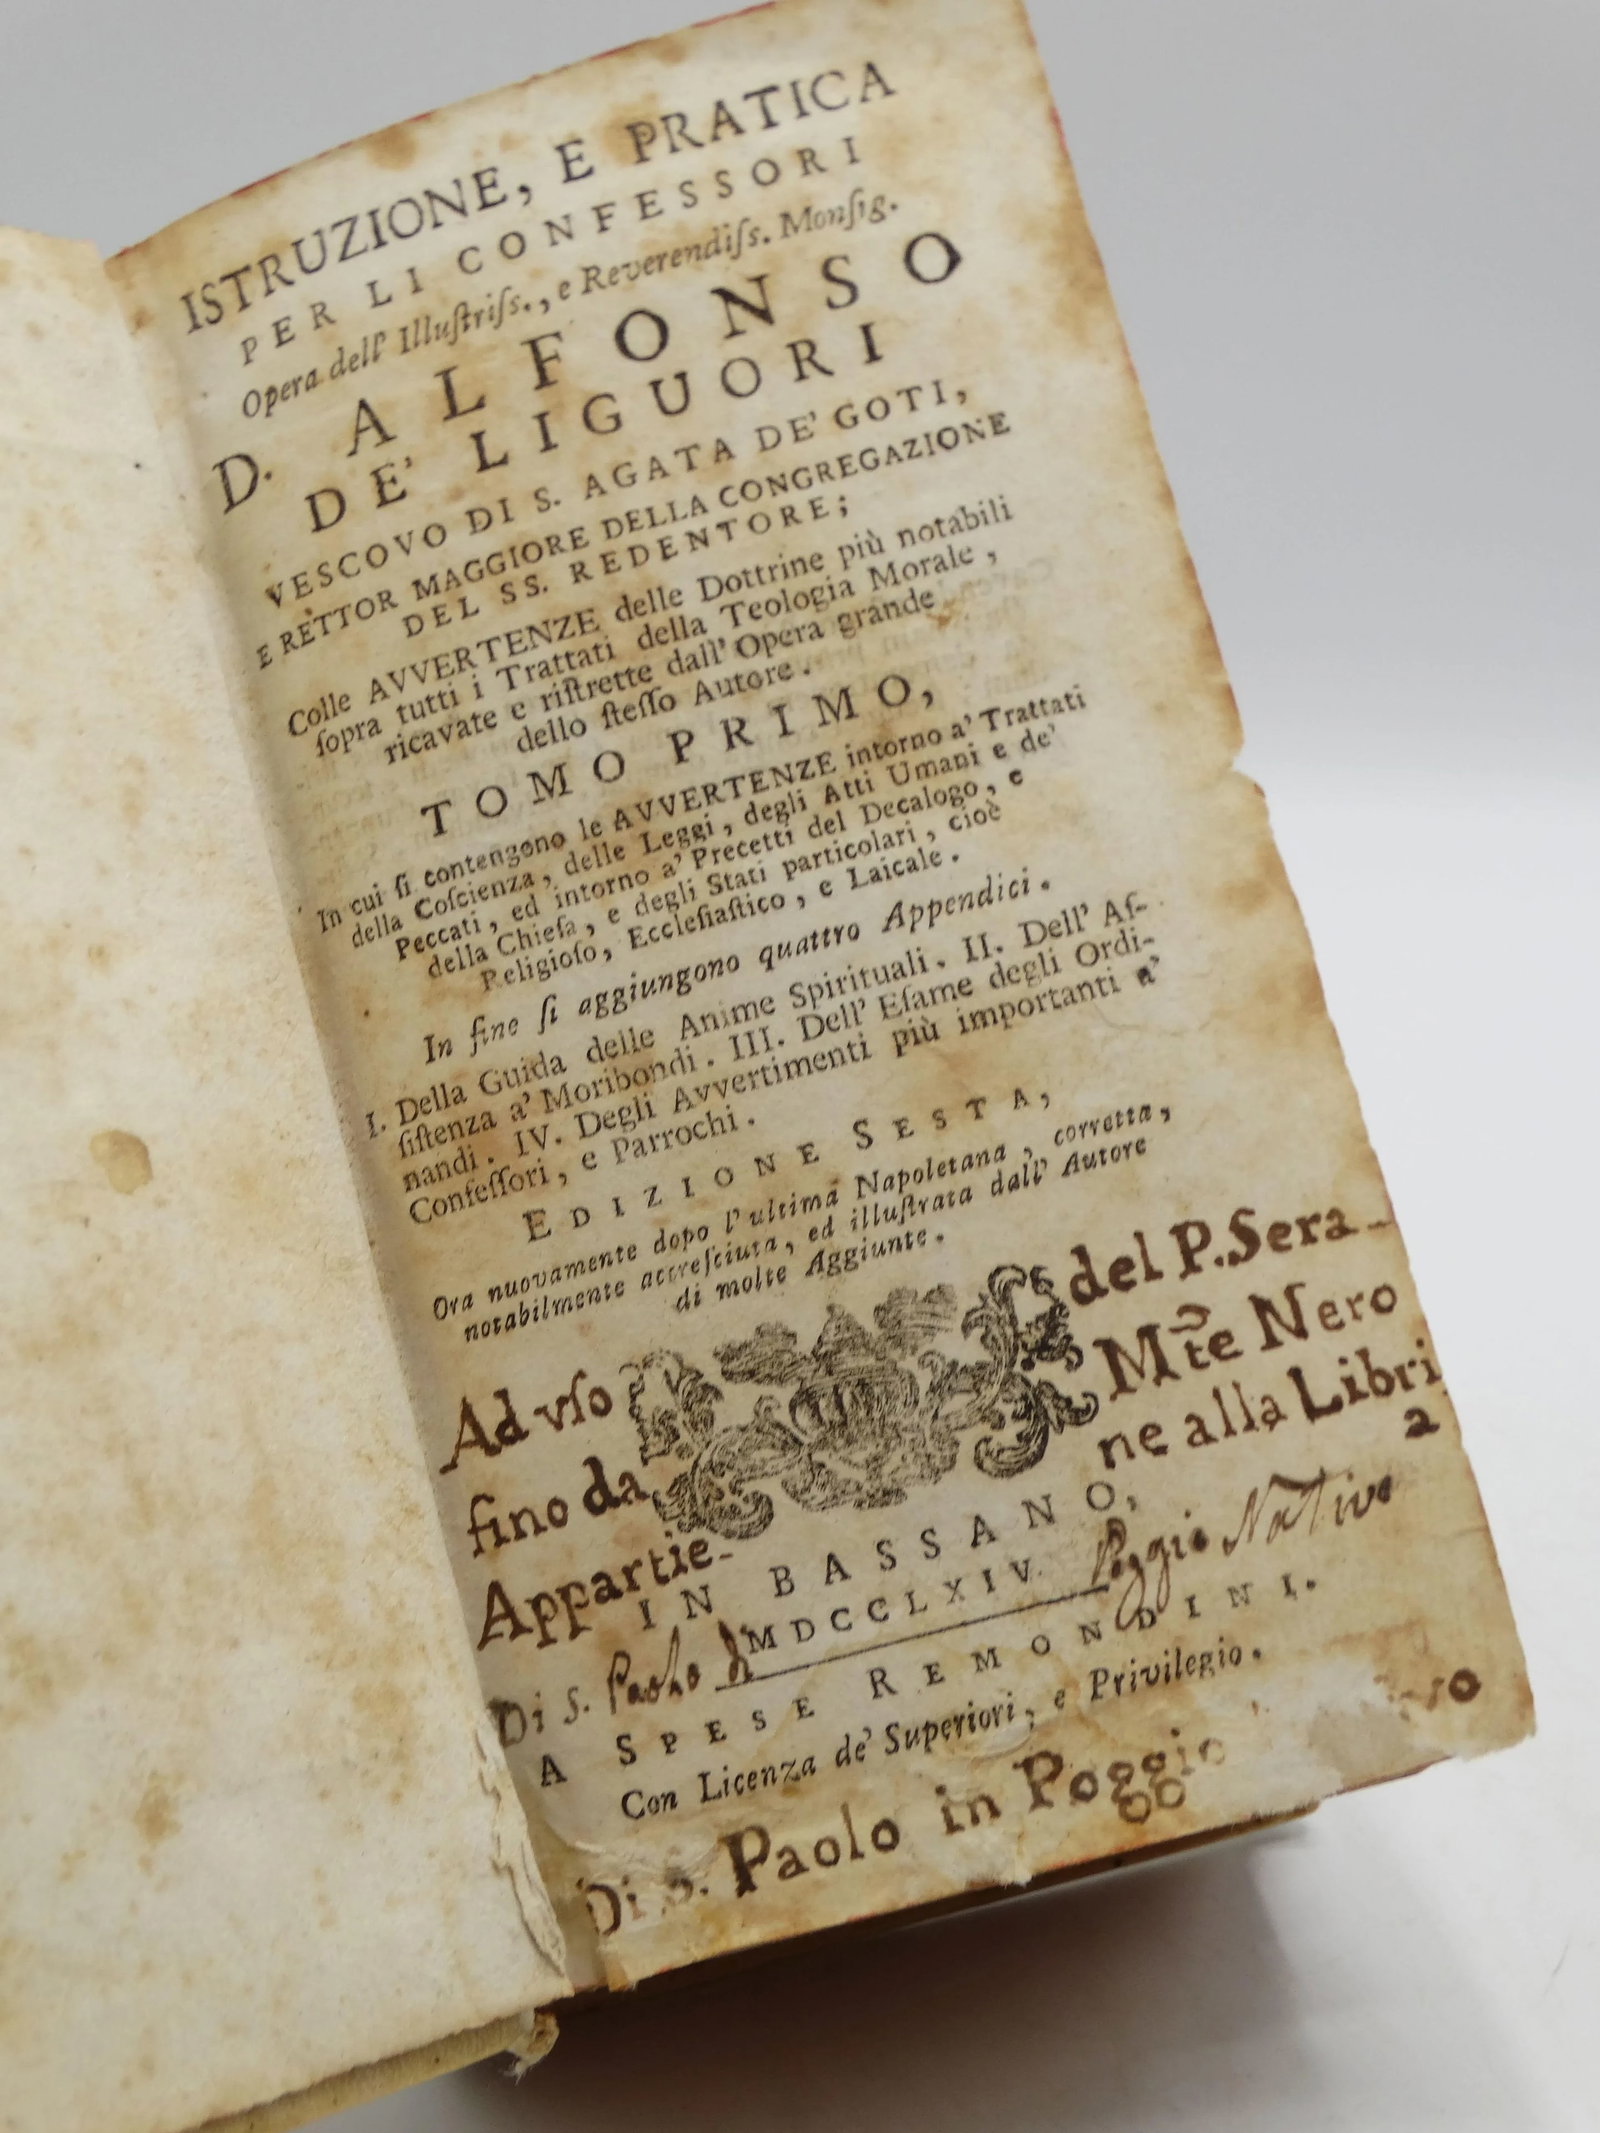 ISTRUZIONE, E PRATICA
PER LI CONFESSORI
Opera dell' Illuſtriſs., e Reverendiſs. Monſig.
D. ALFONSO
DE' LIGUORI
VESCOVO DI S. AGATA DE' GOTI,
E RETTOR MAGGIORE DELLA CONGREGAZIONE
DEL SS. REDENTORE;
Colle AVVERTENZE delle Dottrine più notabili
ſopra tutti i Trattati della Teologia Morale,
ricavate e riſtrette dall' Opera grande
dello ſteſſo Autore.
TOMO PRIMO,
In cui ſi contengono le AVVERTENZE intorno a' Trattati
della Coſcienza, delle Leggi, degli Atti Umani e de'
Peccati, ed intorno a' Precetti del Decalogo, e
della Chieſa, e degli Stati particolari, cioè
Religioſo, Eccleſiaſtico, e Laicale.
In fine ſi aggiungono quattro Appendici.
I. Della Guida delle Anime Spirituali. II. Dell' Aſ-
ſiſtenza a' Moribondi. III. Dell' Eſame degli Ordi-
nandi. IV. Degli Avvertimenti più importanti a'
Confeſſori, e Parrochi.
EDIZIONE SESTA,
Ora nuovamente dopo l'ultima Napoletana, corretta,
notabilmente accreſciuta, ed illuſtrata dall' Autore
di molte Aggiunte.
Ad vſo del P. Sera-
fino da Mte Nero
Appartie- ne alla Libri
a
IN BASSANO,
MDCCLXIV.
Di S. Paolo di Poggio Nativo
A SPESE REMONDINI.
Con Licenza de' Superiori, e Privilegio.
Di S. Paolo in Poggio